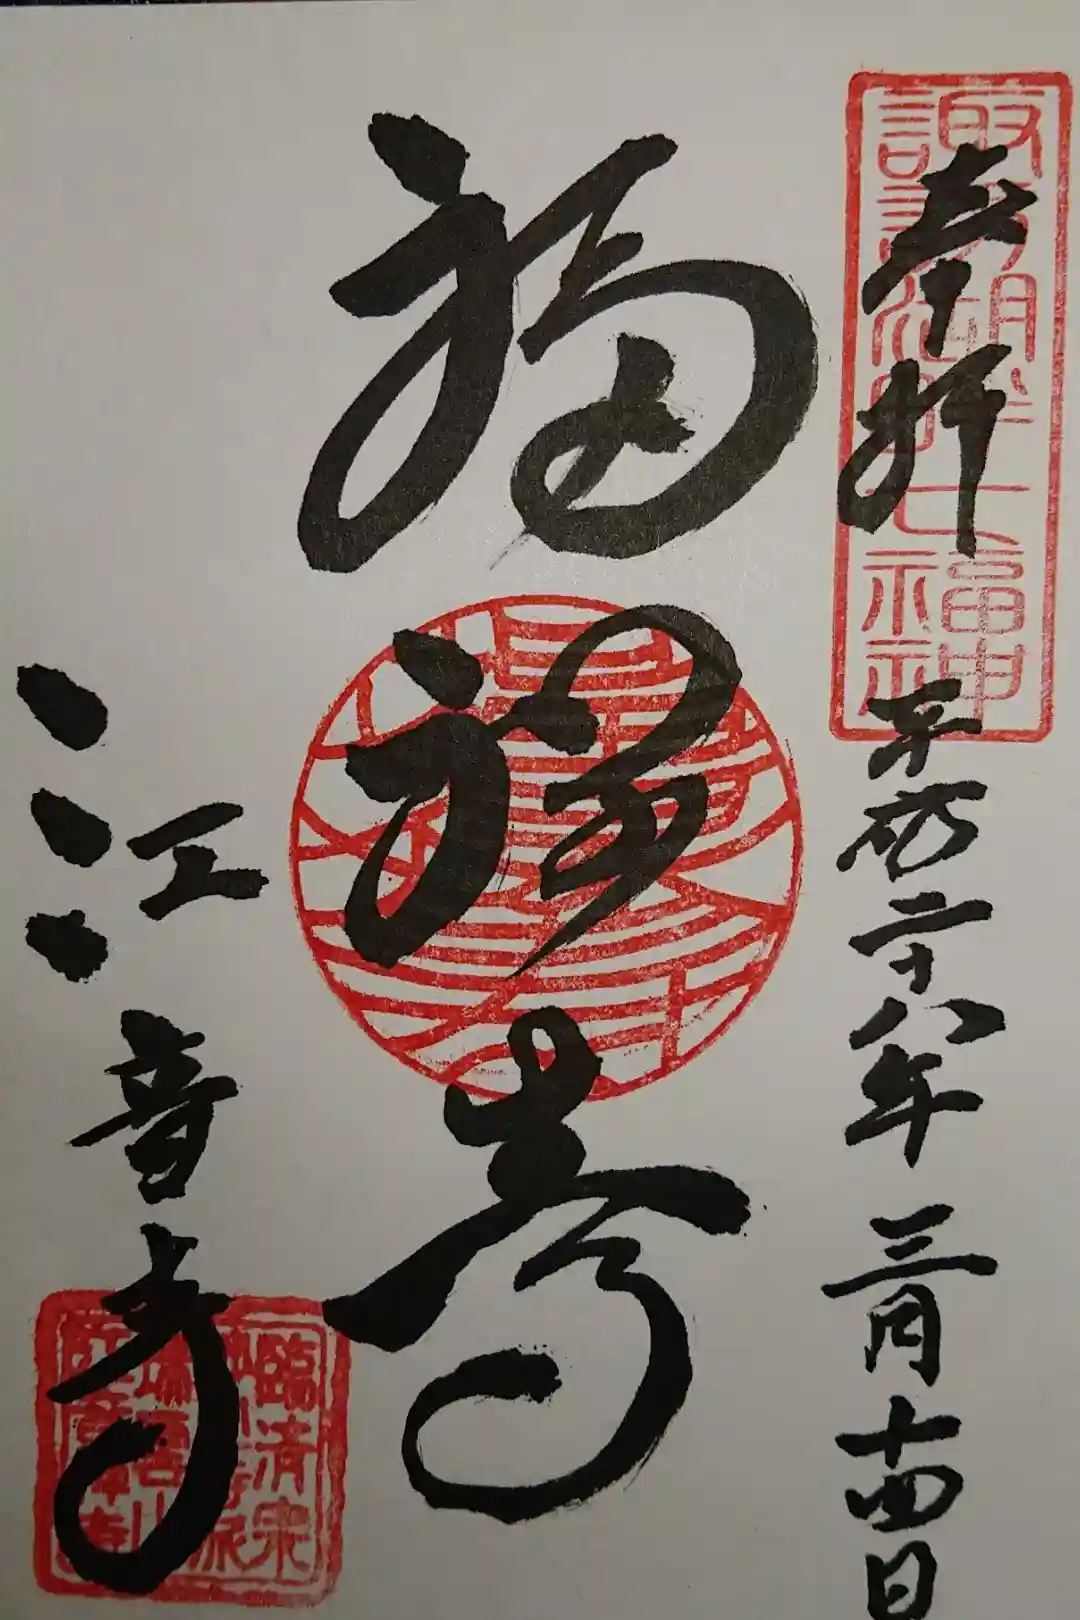 奉拝
諏訪湖畔七福神
平成二十八年三月十四日
福禄寿
江音寺
臨済宗
妙心寺派